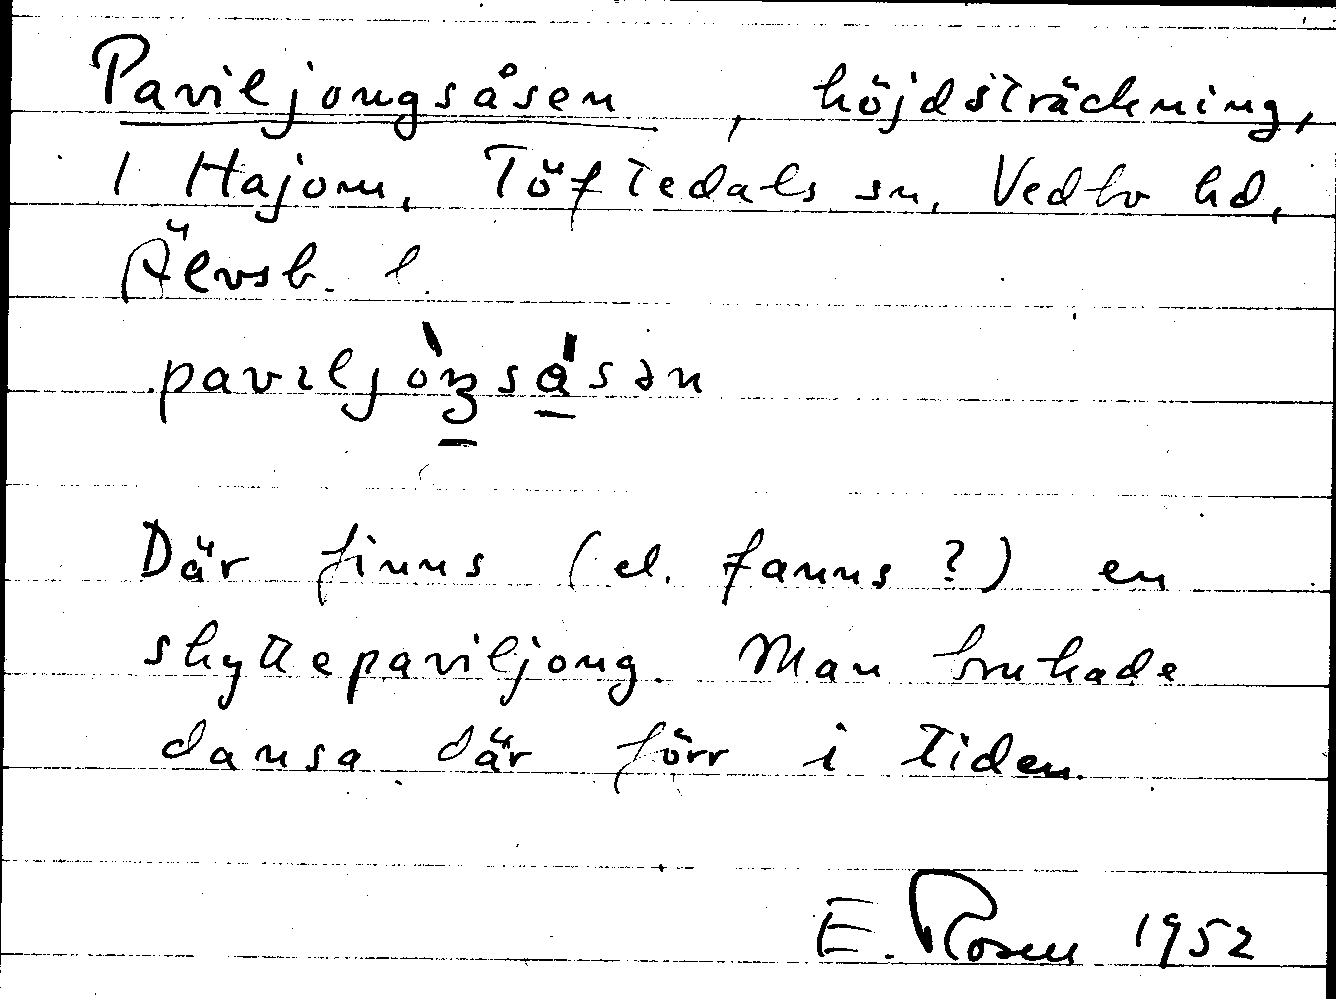 Paviljongsåsen, höjdsträckning,
i Hajom, Töftedals sn, Vedbo hd,
Älvsb. l.
pavɪljòŋså̀sən
Där finns (el. fanns?) en
skyttepaviljong. Man brukade
dansa där förr i tiden.
E. Rosen 1952